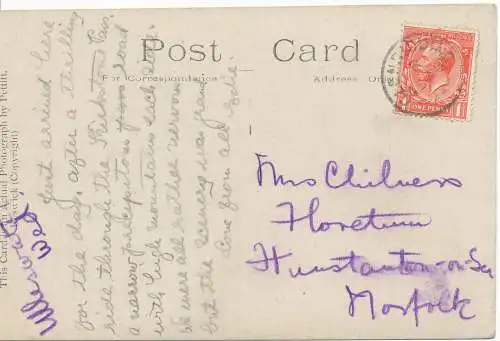 Post Card
For Correspondence
Address Only
This Card is an Actual Photograph by Pettitt,
Keswick (Copyright)
Ullswater
Wed
Just arrived here
for the day, after a thrilling
ride through the Kirkstone Pass.
a narrow precipitous road
with high mountains each side.
We were all rather nervous
but the scenery was grand
Love from all Edie.
Mrs Chilvers
Floretum
Hunstanton-on-Sea
Norfolk
ONE PENNY